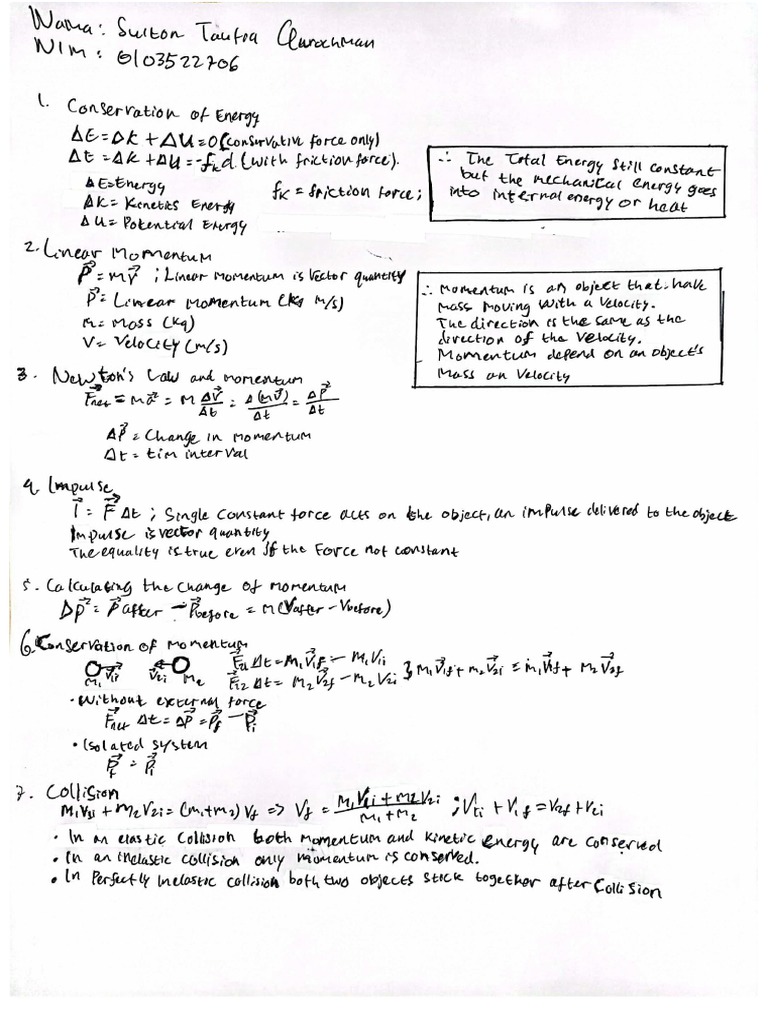 Nama: Sulton Taufra Qurochman
NIM: 0103522706
1. Conservation of Energy
ΔE = ΔK + ΔU = 0 (conservative force only)
Δt = ΔK + ΔU = -fₖd (with friction force).
ΔE = Energy
fK = friction force;
ΔK = Kinetics Energy
ΔU = Potential Energy
∴ The Total Energy Still constant
but the mechanical energy goes
into internal energy or heat
2. Linear Momentum
P⃗ = mv⃗ ; Linear Momentum is Vector quantity
P⃗ = Linear Momentum (kg m/s)
m = Mass (kg)
V = Velocity (m/s)
∴ Momentum is an object that have
Mass Moving With a Velocity.
The direction is the same as the
direction of the Velocity.
Momentum depend on an object's
Mass an Velocity
3. Newton's Law and momentum
F⃗net = ma⃗ = m Δv⃗/Δt = Δ(mv⃗)/Δt = Δp⃗/Δt
ΔP⃗ = Change in momentum
Δt = tim interval
4. Impulse
I⃗ = F⃗ Δt ; Single Constant force acts on the object, an impulse delivered to the object
Impulse is vector quantity
The equality is true even if the Force not constant
5. Calculating the Change of momentum
Δp⃗ = P⃗after - P⃗before = m(Vafter - Vbefore)
6. Conservation of momentum
m₁ V⃗₁i V⃗₂i m₂ F⃗₂₁ Δt = m₁V⃗₁f - m₁V₁i
F⃗₁₂ Δt = m₂V⃗₂f - m₂V₂i } m₁V⃗₁f + m₂V⃗₂i = m₁V⃗₁f + m₂V⃗₂f
• Without external force
F⃗net Δt = ΔP⃗ = P⃗f - P⃗i
• Isolated system
P⃗f = P⃗i
7. Collision
m₁V₁i + m₂V₂i = (m₁+m₂) Vf => Vf = m₁V₁i + m₂V₂i / m₁+m₂ ; V₁i + V₁f = V₂f + V₂i
• In an elastic Collision both Momentum and Kinetic energy are conserved
• In an inelastic collision only momentum is conserved.
• In Perfectly Inelastic collision both two objects stick together after Collision